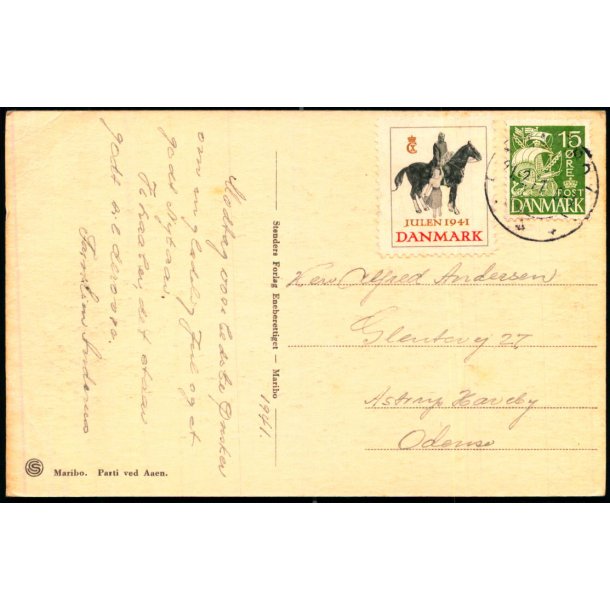 Modtag vore bedste Ønsker
om en glædelig Jul og et
godt Nytaar.
Vi haaber, det staar
godt til derovre.
Familien
1941.
Stenders Forlag Eneberettiget — Maribo
S
Maribo. Parti ved Aaen.
JULEN 1941
DANMARK
15
ØRE
POST
DANMARK
Herr Alfred Andersen
Glentevej 27
Astrup Haveby
Odense